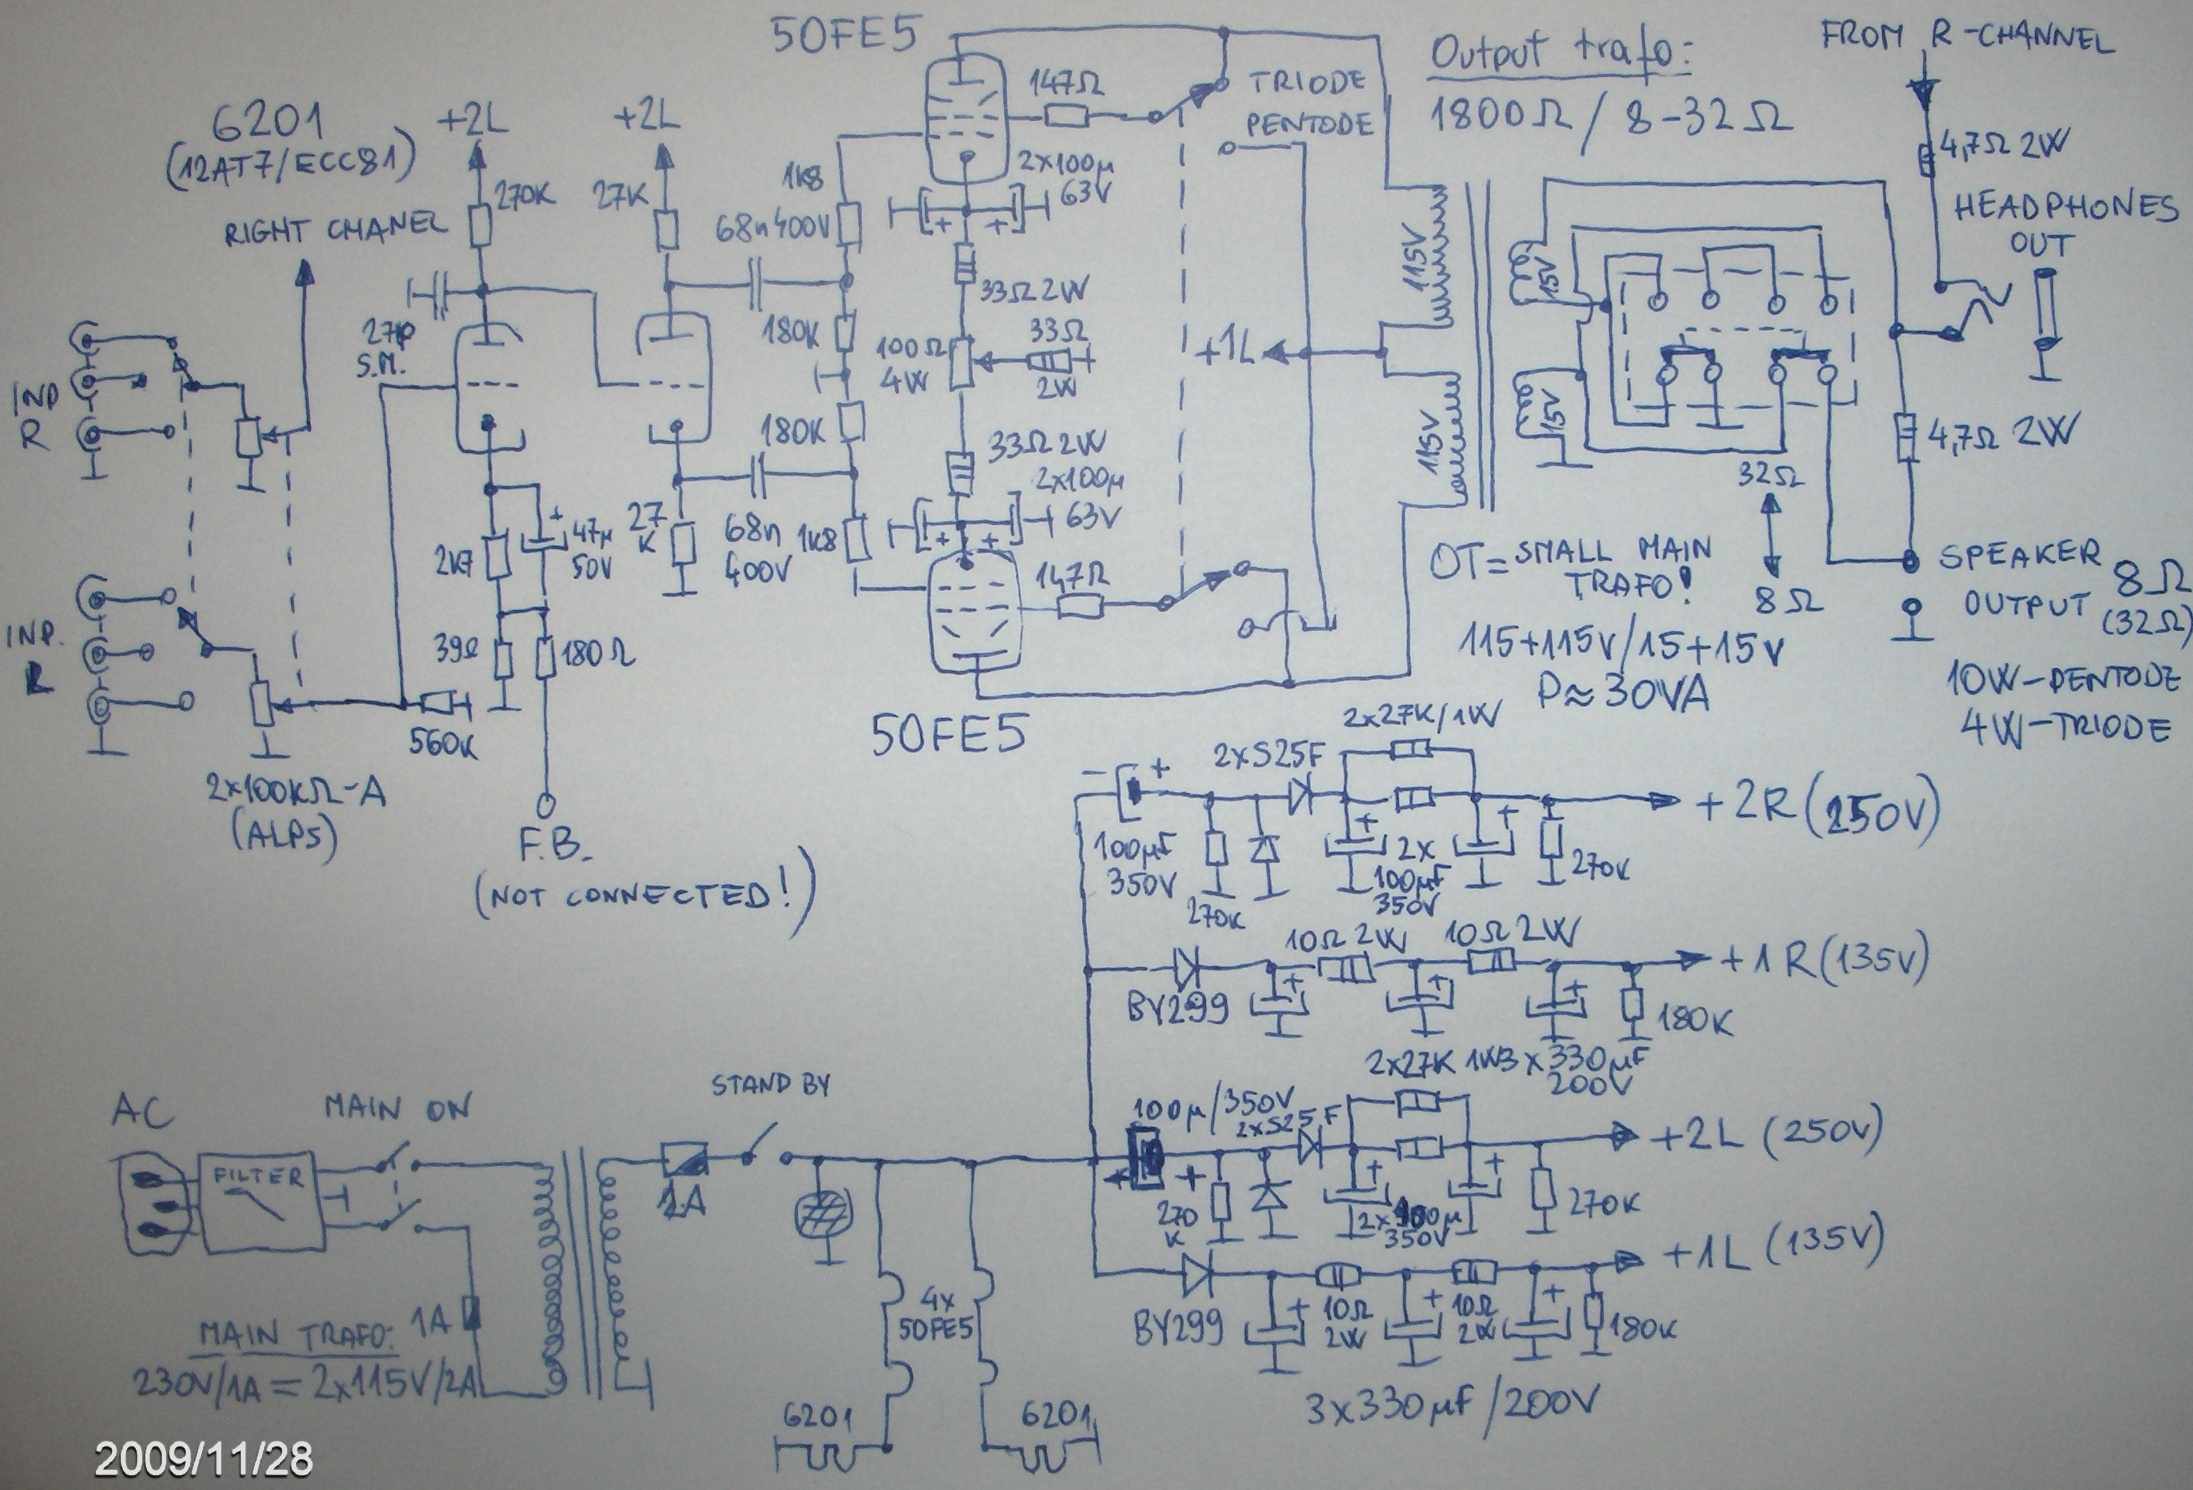 50FE5
Output trafo:
1800Ω / 8-32Ω
FROM R-CHANNEL
4,7Ω 2W
HEADPHONES
OUT
6201
(12AT7/ECC81)
RIGHT CHANEL
+2L
270K
+2L
27K
1K8
68n 400V
147Ω
TRIODE
PENTODE
2x100µ
63V
27p
S.M.
180K
33Ω 2W
100Ω
4W
33Ω
2W
+1L
115V
15V
115V
15V
INP
R
180K
33Ω 2W
2x100µ
63V
4,7Ω 2W
32Ω
8Ω
2K7
47µ
50V
27
K
68n
400V
1K8
147Ω
OT= SMALL MAIN
TRAFO!
115+115V/15+15V
P≈30VA
SPEAKER
OUTPUT
8Ω
(32Ω)
10W-PENTODE
4W-TRIODE
INP.
L
39Ω
180Ω
560K
2x100KΩ-A
(ALPS)
F.B.
(NOT CONNECTED!)
50FE5
2x27K/1W
2xS25F
- +
100µF
350V
270K
+
2x
100µF
350V
+
270K
+2R (250V)
10Ω 2W
10Ω 2W
BY299
+1R (135V)
180K
3x330µF
200V
2x27K 1W
100µ/350V
2xS25F
270
K
350V
270K
+2L (250V)
BY299
10Ω
2W
10Ω
2W
180K
+1L (135V)
3x330µF/200V
AC
MAIN ON
STAND BY
FILTER
1A
MAIN TRAFO:
230V/1A = 2x115V/2A
4x
50FE5
6201
6201
2009/11/28